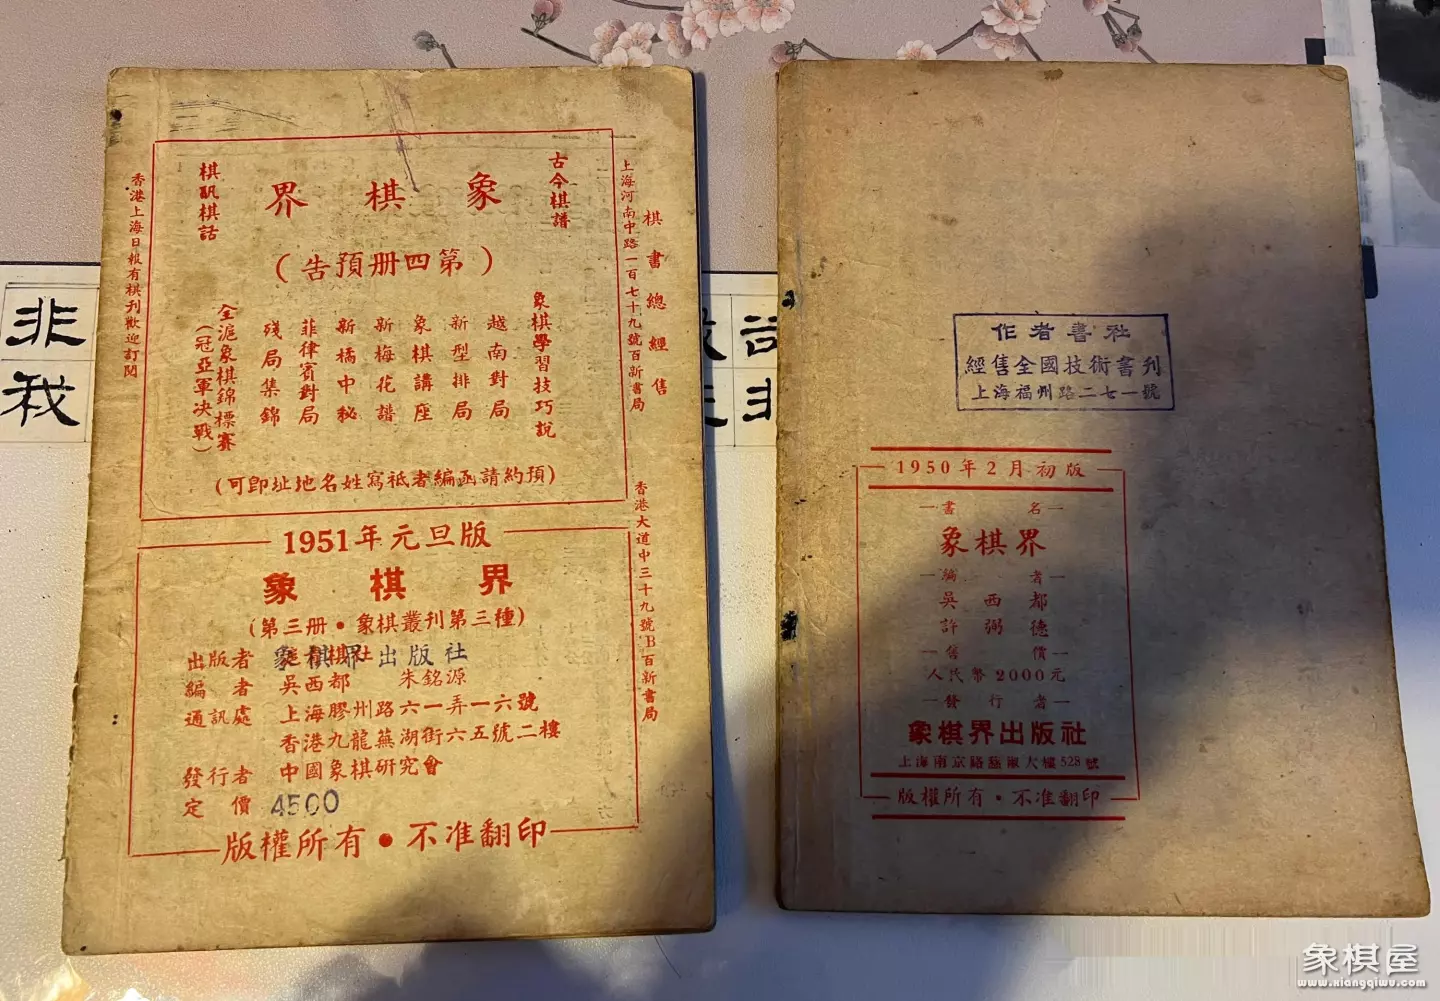 棋書總經售
上海河南中路一百七十九號百新書局
香港大道中三十九號B百新書局
古今棋譜
象棋界
棋訊棋話
(第四册預告)
象棋學習技巧說
越南對局
新型排局
象棋講座
新梅花譜
新橘中秘
菲律賓對局
殘局集錦
全滬象棋錦標賽
(冠亞軍决戰)
(預約請函編者祗寫姓名地址即可)
香港上海日報有棋刊歡迎訂閱
1951年元旦版
象棋界
(第三册·象棋叢刊第三種)
出版者 象棋界出版社
編者 吳西都 朱銘源
通訊處 上海膠州路六一弄一六號
香港九龍蕪湖街六五號二樓
發行者 中國象棋研究會
定價 4500
版權所有·不准翻印
作者書社
經售全國技術書刊
上海福州路二七一號
1950年2月初版
書名
象棋界
編者
吳西都
許弼德
售價
人民幣2000元
發行者
象棋界出版社
上海南京路慈淑大樓528號
版權所有·不准翻印
非
我
非
象棋屋
www.xiangqiwu.com